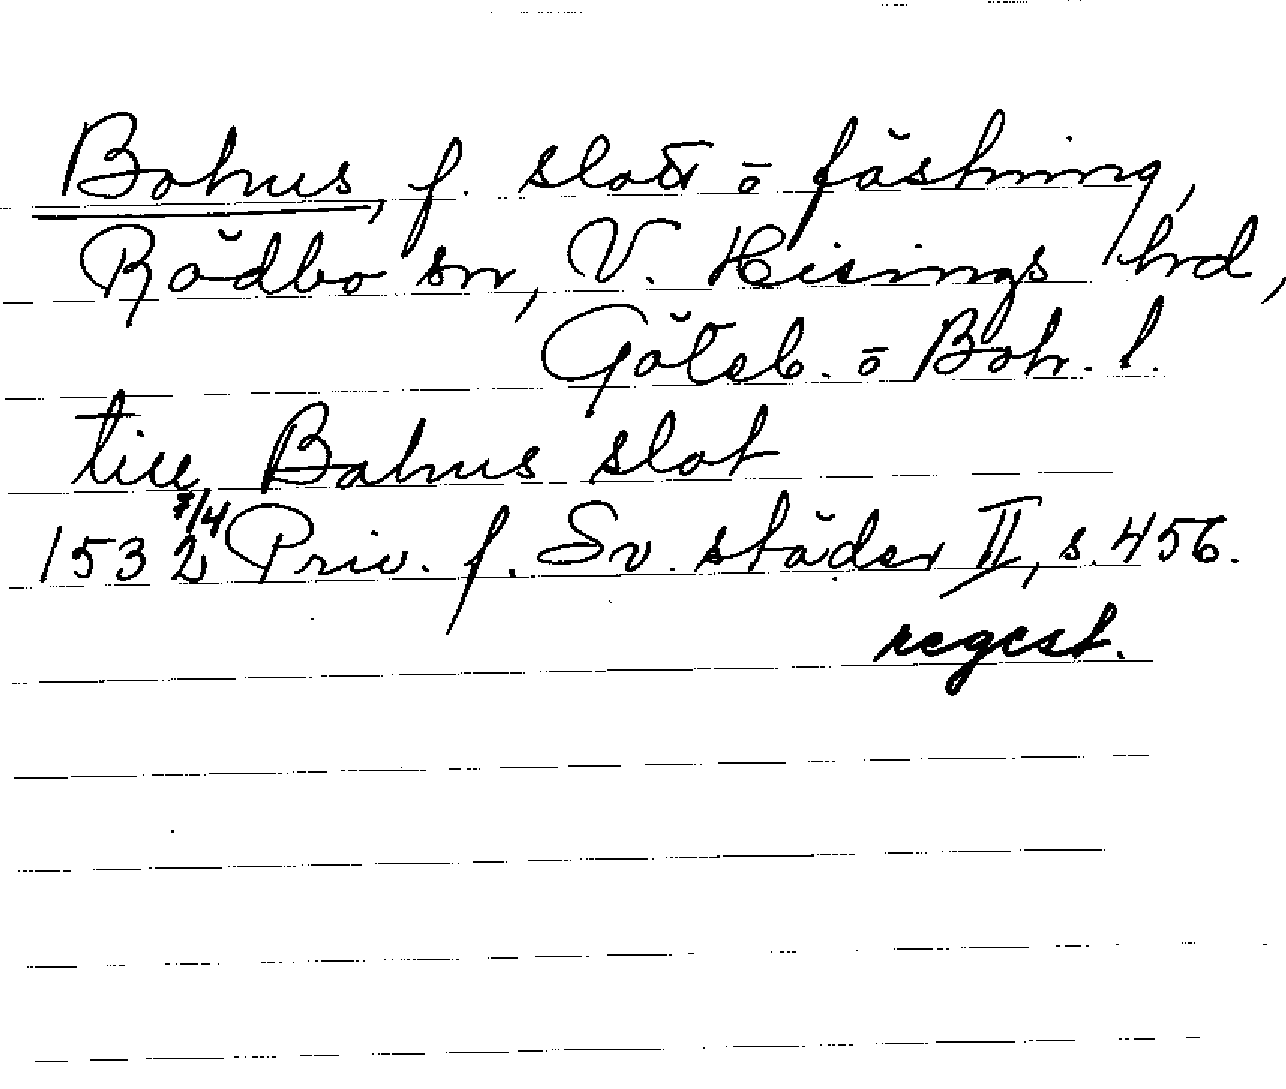 Bohus, f. slott o fästning,
Rödbo sn, V. Hisings hrd,
Göteb. o Boh. l.
till Bahus slot
1532 7/4 Priv. f. Sv. städer II, s. 456.
regest.